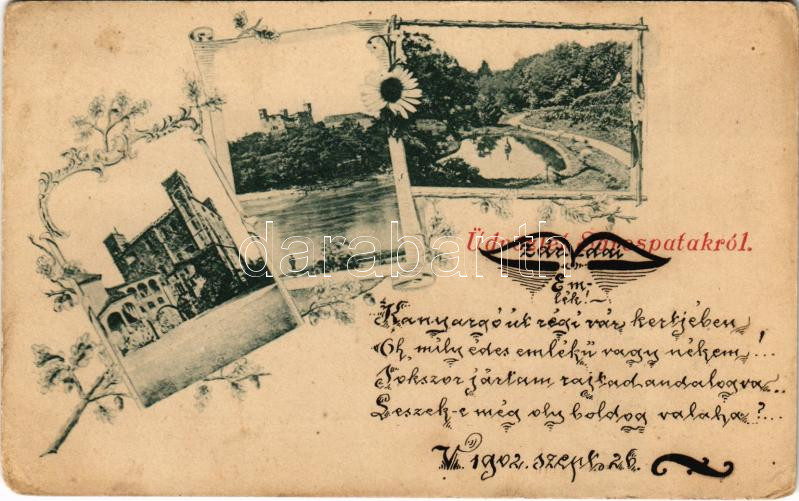 Üdvözlet Sárospatakról.
Em-
lék!~
Kanyargó út régi vár kertjében
Oh, mily édes emlékű vagy nékem!...
Sokszor jártam rajtad andalogva...
Leszek-e még oly boldog valaha?...
V. 1902. szept. 26.
darabanth.com